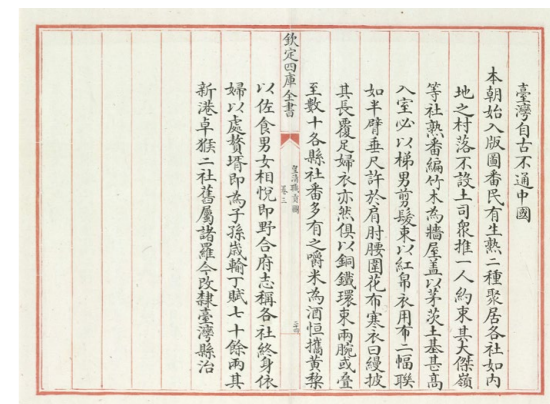 臺灣自古不通中國
本朝始入版圖番民有生熟二種聚居各社如内
地之村落不設土司衆推一人約束其大傑嶺
等社熟番編竹木為牆屋盖以茅茨土基甚高
入室必以梯男剪髮束以紅帛衣用布二幅聯
如半臂垂尺許於肩肘腰圍花布寒衣曰縵披
其長覆足婦衣亦然俱以銅鐵環束兩腕或叠
至數十各縣社番多有之嚼米為酒恒攜黄棃
欽定四庫全書
皇清職貢圖
卷三
以佐食男女相悅即野合府志稱各社終身依
婦以處贅壻即為子孫歲輸丁賦七十餘兩其
新港卓猴二社舊屬諸羅今改隸臺灣縣治